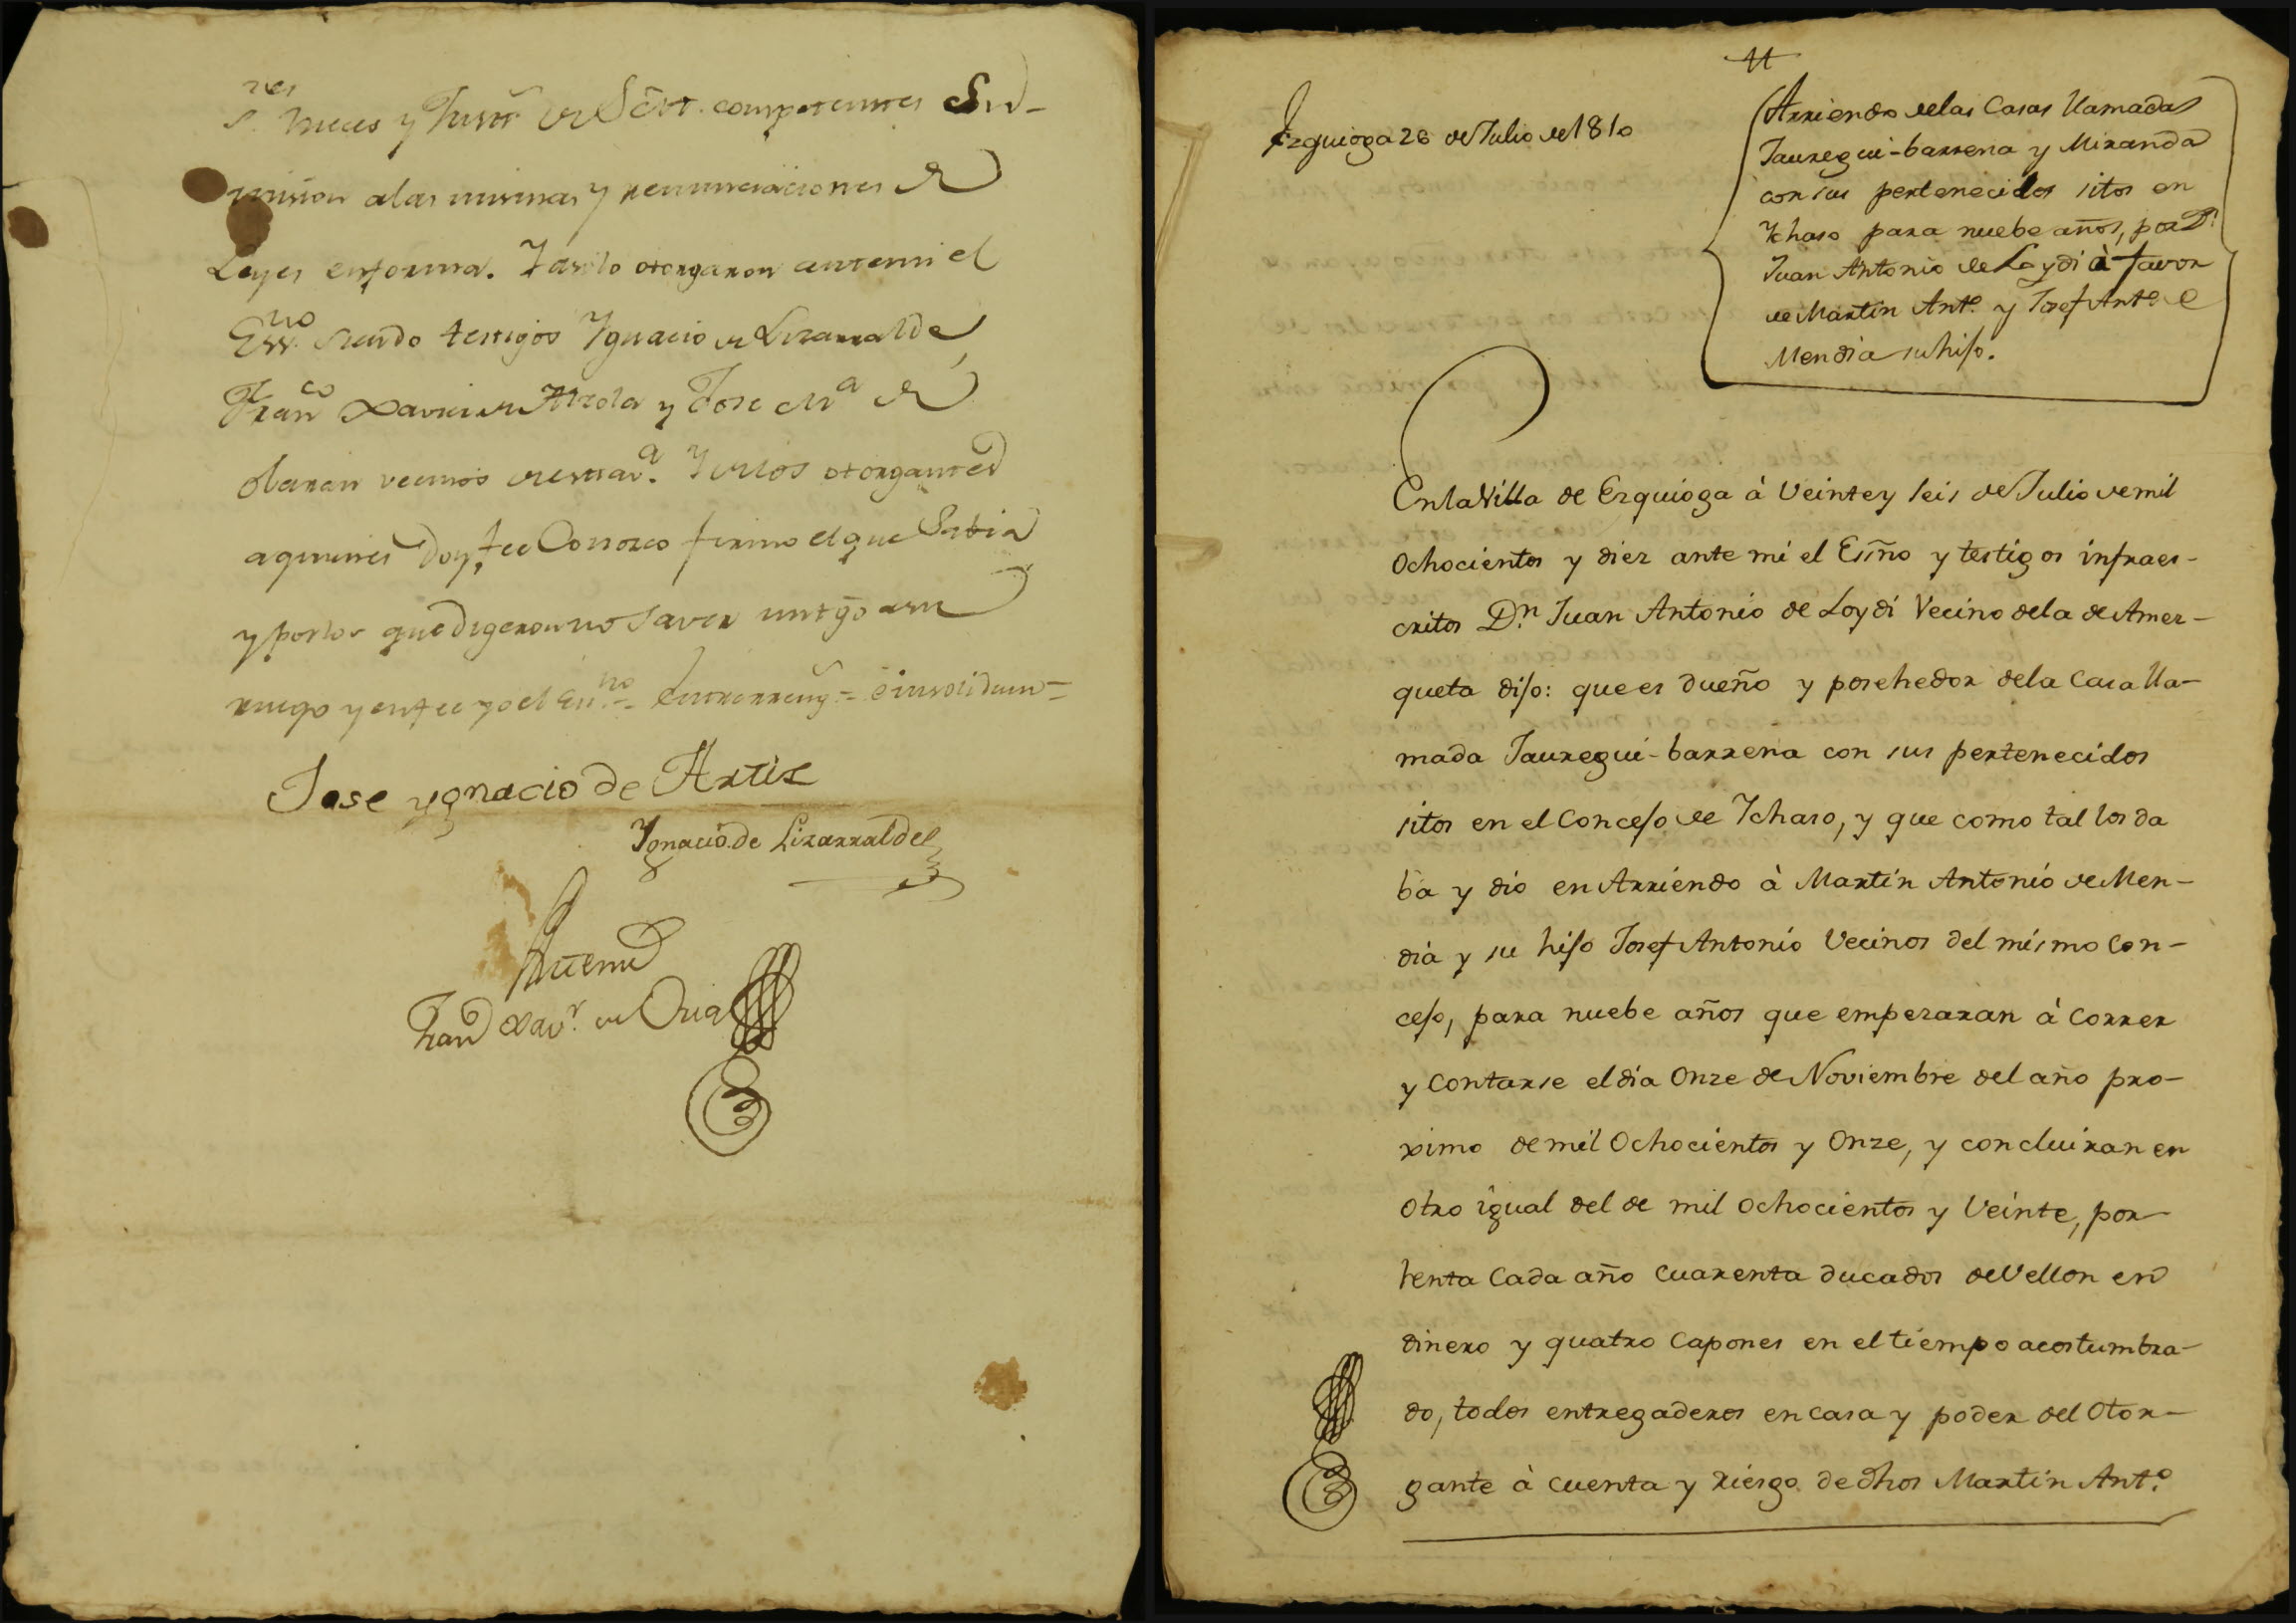 S.res Jueces y Justt.s de S. M. competentes Su-
mision a las mismas y renunciaciones de
Leyes enforma. Y asilo otorgaron antemi el
Essno siendo testigos Ygnacio de Lizarralde,
Franco Xavier de Alzola y Jose Ma de
vecinos de esta va. Y delos otorgantes
aquienes doy fee Conozco firmo el que Sabia
y porlos que digeron no Saver un tgo asu
ruego y enfee yo el Essno = Entrerreng.s = einsolidum =
Jose ygnacio de Artiz
Ygnacio de Lizarralde
Antemi
Franco Xavr. de Oria
11
Ezquioga 26 de Julio de 1810
Arriendo delas Casas llamadas
Jauregui-barrena y Miranda
con sus pertenecidos sitos en
Ychaso para nuebe años, por Dn.
Juan Antonio de Loydi à favor
de Martin Anto. y Josef Anto. de
Mendia su hijo.
En la Villa de Ezquioga à Veinte y seis de Julio de mil
Ochocientos y diez ante mi el Essño y testigos infraes-
critos Dn. Juan Antonio de Loydi Vecino dela de Amez-
queta dijo: que es dueño y posehedor dela Casa lla-
mada Jauregui-barrena con sus pertenecidos
sitos en el Concejo de Ychaso, y que como tal los da
ba y dió en Arriendo à Martin Antonio de Men-
dia y su hijo Josef Antonio Vecinos del mismo Con-
cejo, para nuebe años que empezaran à Correr
y Contarse el dia Onze de Noviembre del año pro-
ximo de mil Ochocientos y Onze, y concluiran en
Otro igual del de mil ochocientos y Veinte, por
henta Cada año Cuarenta ducados de Vellon en
dinero y quatro Capones en el tiempo acostumbra-
do, todos entregaderos en casa y poder del Otor-
gante à cuenta y riesgo de dhos Martin Anto.